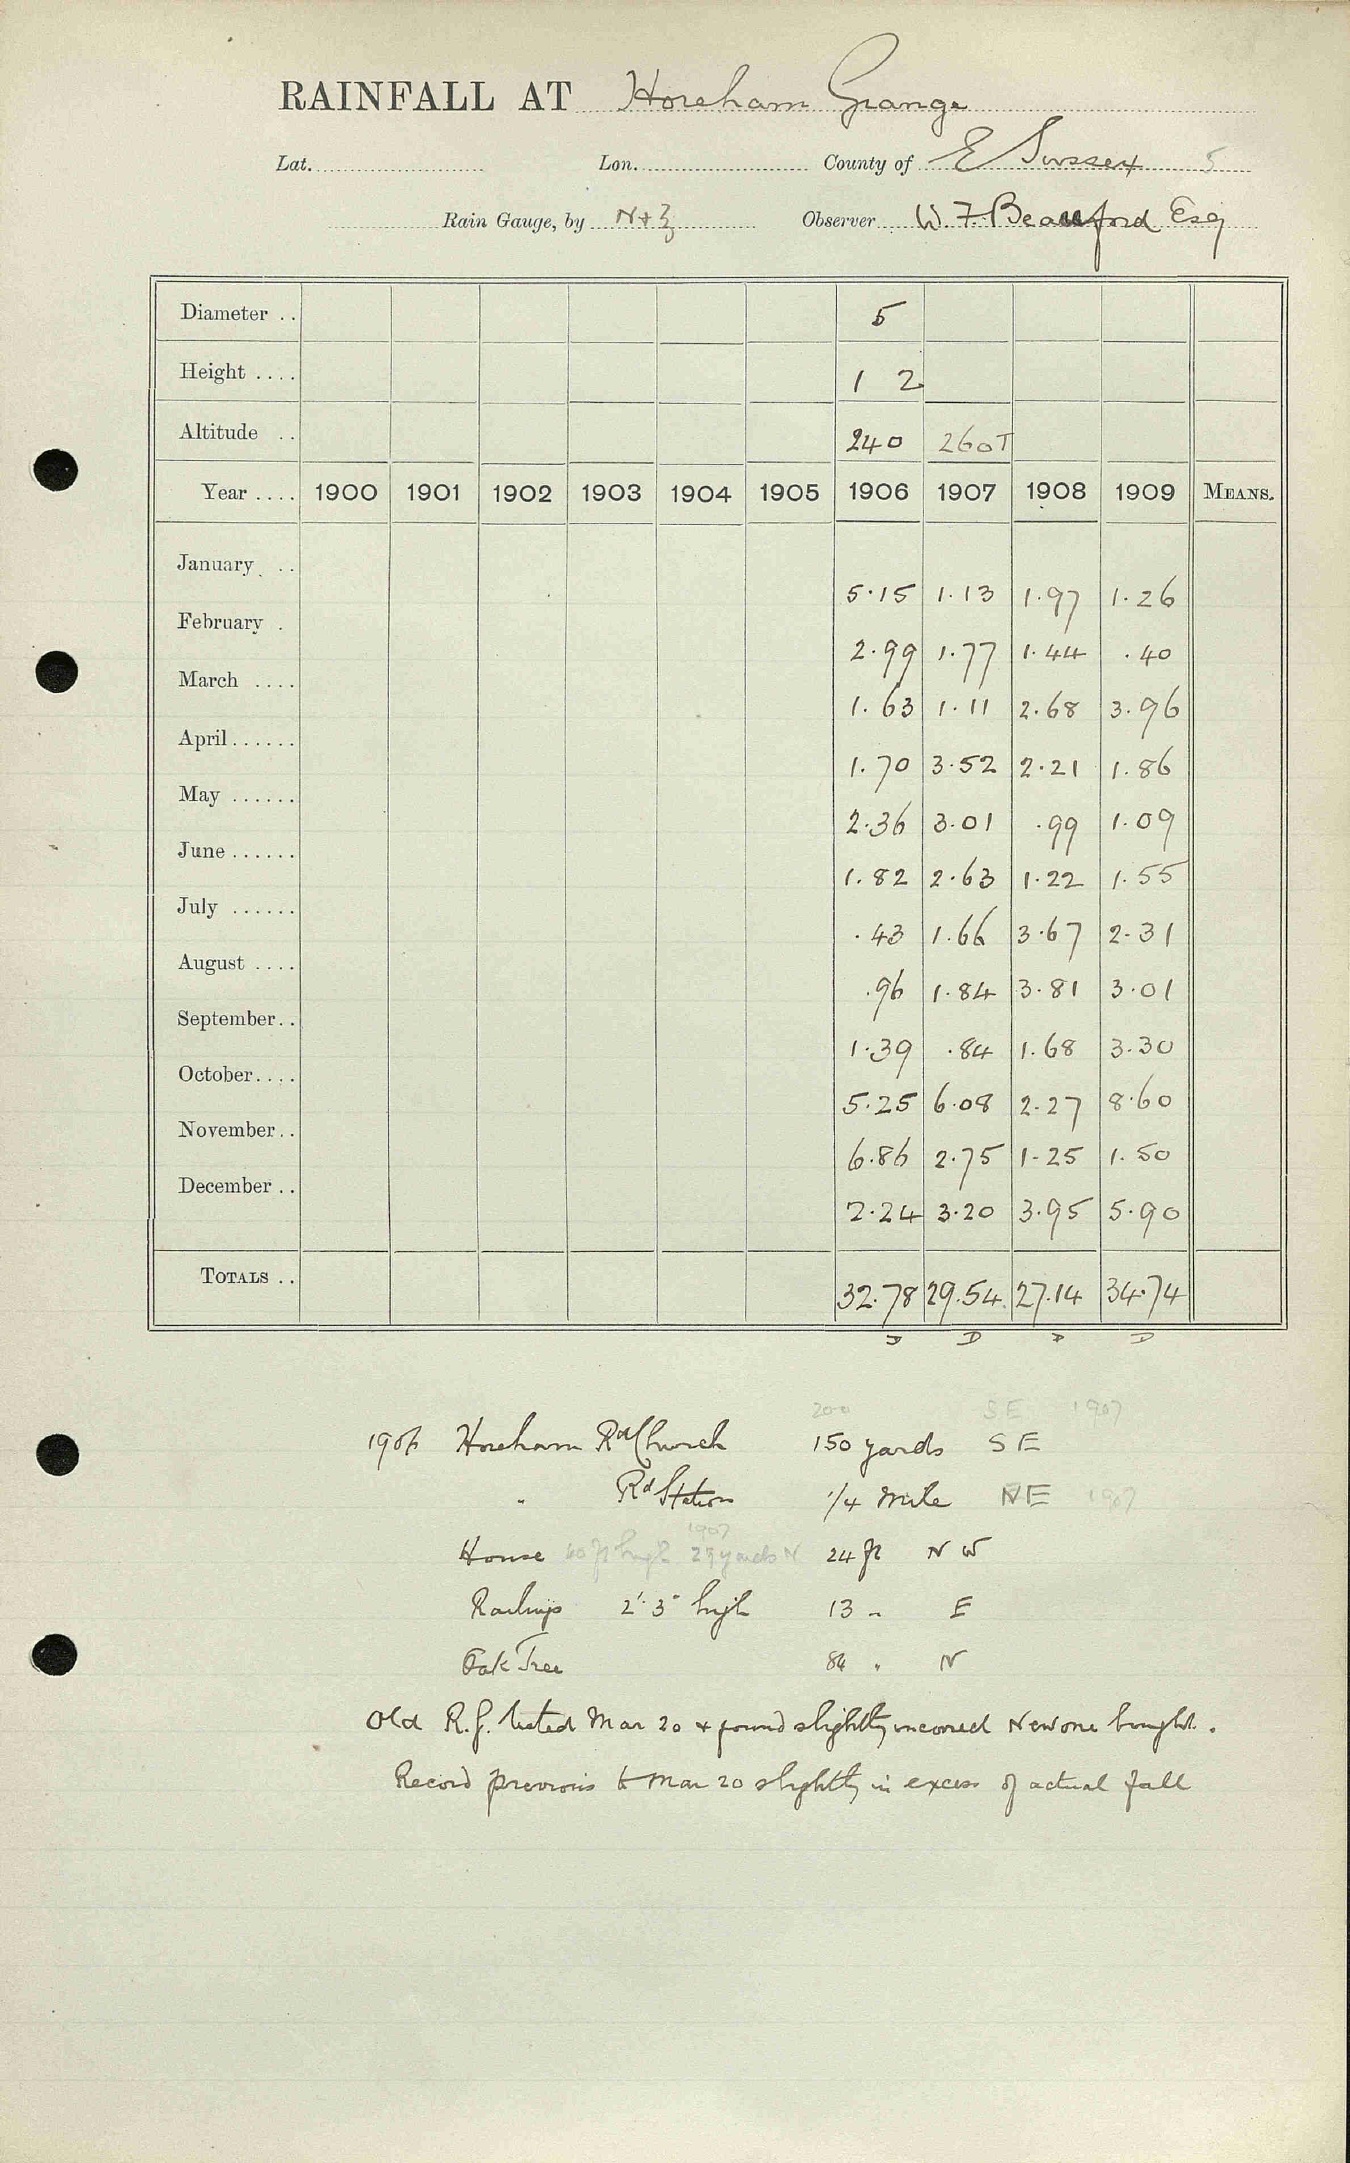 RAINFALL AT Horeham Grange
Lat. Lon. County of E Sussex 5
Rain Gauge, by N+Z Observer W. F. Beauford Esq
Diameter .. 5
Height .... 1 2
Altitude .. 240 260T
Year .... 1900 1901 1902 1903 1904 1905 1906 1907 1908 1909 MEANS.
January .. 5.15 1.13 1.97 1.26
February . 2.99 1.77 1.44 .40
March .... 1.63 1.11 2.68 3.96
April...... 1.70 3.52 2.21 1.86
May ...... 2.36 3.01 .99 1.09
June ...... 1.82 2.63 1.22 1.55
July ...... .43 1.66 3.67 2.31
August .... .96 1.84 3.81 3.01
September.. 1.39 .84 1.68 3.30
October.... 5.25 6.08 2.27 8.60
November.. 6.86 2.75 1.25 1.50
December .. 2.24 3.20 3.95 5.90
TOTALS .. 32.78 29.54 27.14 34.74
D D D D
200 SE 1907
1906 Horeham Rd Church 150 yards SE
" Rd Station 1/4 mile NE 1907
1907
House 40 ft high 29 yards N 24 ft NW
Railings 2' 3" high 13 " E
Oak Tree 84 " N
Old R.G. tested Mar 20 + found slightly incorrect New one bought.
Record previous to Mar 20 slightly in excess of actual fall